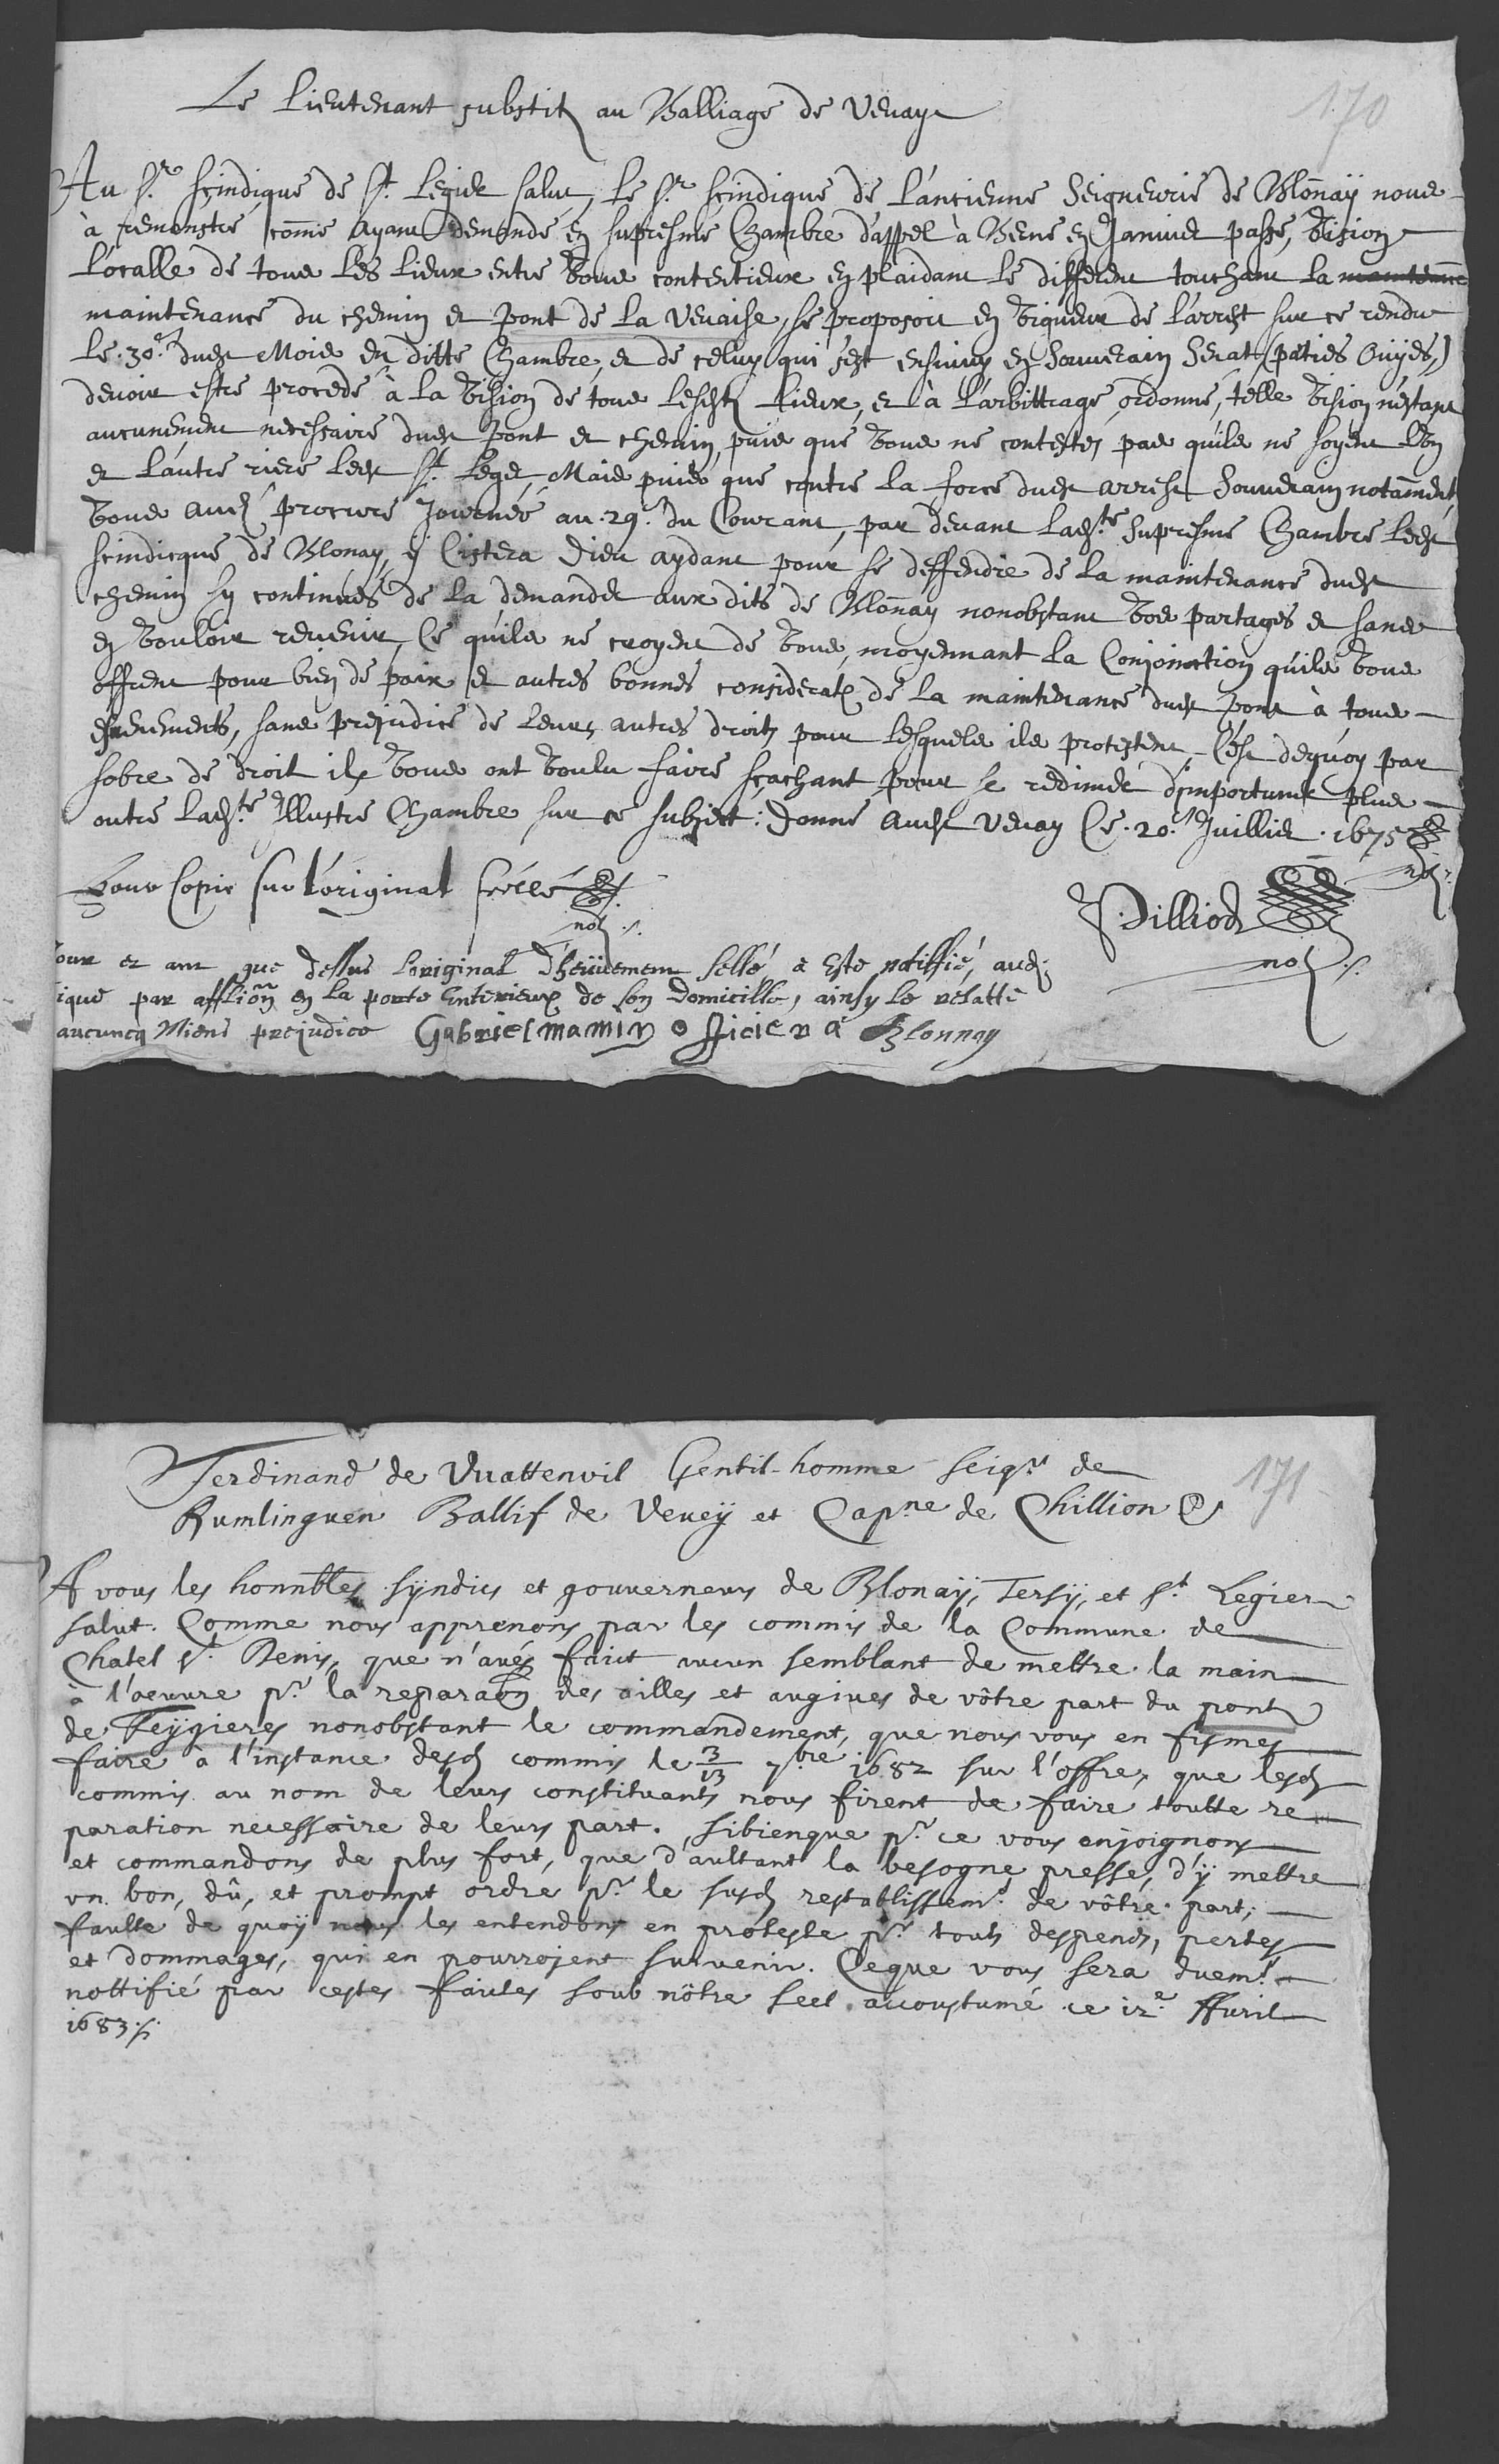 170
Le Lieutenant substit au Balliage de Vevay
Au Sr. scindique de St. Legier salut, Le Sr. scindique de L'ancienne Seigneurie de Blonaÿ nous
à remonstré comme Ayant demandé en supresme Chambre d'appel à Berne en Janvier passé, Vision
Localle de tous Les Lieux entre Vous contentieux en plaidant Le different touchant La maintenance
maintenance du chemin et pont de La Vevaise, se proposoit en Vigueur de L'arrest sur ce rendu
Le .30e. dudt Mois en ditte Chambre, et de celuy qui s'est ensuivy en Souverain Senat (parties Ouÿes,)
devoir estre procedé à La Vision de tous Lesdts Lieux, et à L'arbittrage ordonné, telle Vision n'estant
aucunement necessaire dudt Pont et chemin, puis que Vous ne contestez pas qu'ils ne soyent L'un
et L'autre riere Ledt St. Legier, Mais puis que contre La force dudt arrest Souverain notamment
Vous avez procuré Journée au .29e. du Courant, par devant Ladte Supresme Chambre Ledt
scindicque de Blonay, y Cistera Dieu aydant pour se deffendre de La maintenance dudt
chemin sy continués de La demander aux dits de Blonay nonobstant Vos partages et sans
en Vouloir revenir, Ce qu'ils ne croyent de Vous, moyennant La Conjonction qu'ils Vous
offrent pour bien de paix et autres bonnes considerat de La maintenance dudt pont à tous
evenements, sans prejudice de Leurs autres droits pour Lesquels ils protestent, C'est dequoy par
sobre de droit ils Vous ont Voulu faire sçachant pour se redimer d'importuner plus
outre Ladte Illustre Chambre sur ce subject: Donné audt Vevay Ce .20e. Juillier .1675
Pour Copie sur L'original séélé
not
Dilliod
not
Jour et an que dessus L'original dheüement sellé a Esté notiffié, aud
ique par afflion en La porte Enterieux de son Domicille, ainsy Le relatte
aucuncq Miens prejudice Gabriel mamin officier a Blonnay
171
Ferdinand de Vuattenvil Gentil-homme seigr. de
Rumlinguen Ballif de Vevey et Capne de Chillion &
A vous les honnbles syndics et gouverneurs de Blonaÿ, Tersÿ, et St. Legier
salut. Comme nous apprenons par les commis de la Commune de
Chatel St. Denis, que n'avés faict aucun semblant de mettre la main
à l'oeuvre pr. la reparaon des ailles et augives de vôtre part du pont
de Feÿgieres nonobstant le commandement, que nous vous en fismes
faire à l'instance desd commis le 3/13 7bre 1682 sur l'offre, que lesd
commis au nom de leurs constituants nous firent de faire toutte re
paration necessaire de leurs part. Sibienque pr. ce vous enjoignons
et commandons de plus fort, que d'aultant la besogne presse, d'ÿ mettre
un bon, dû, et prompt ordre pr. le susd restablissemt. de vôtre part;
faulte de quoÿ nous les entendons en proteste pr. touts despends, pertes
et dommages, qui en pourrojent survenir. Ceque vous sera duemt.
nottifié par cestes faictes soub nôtre seel accoustumé ce 12e Avril
1683